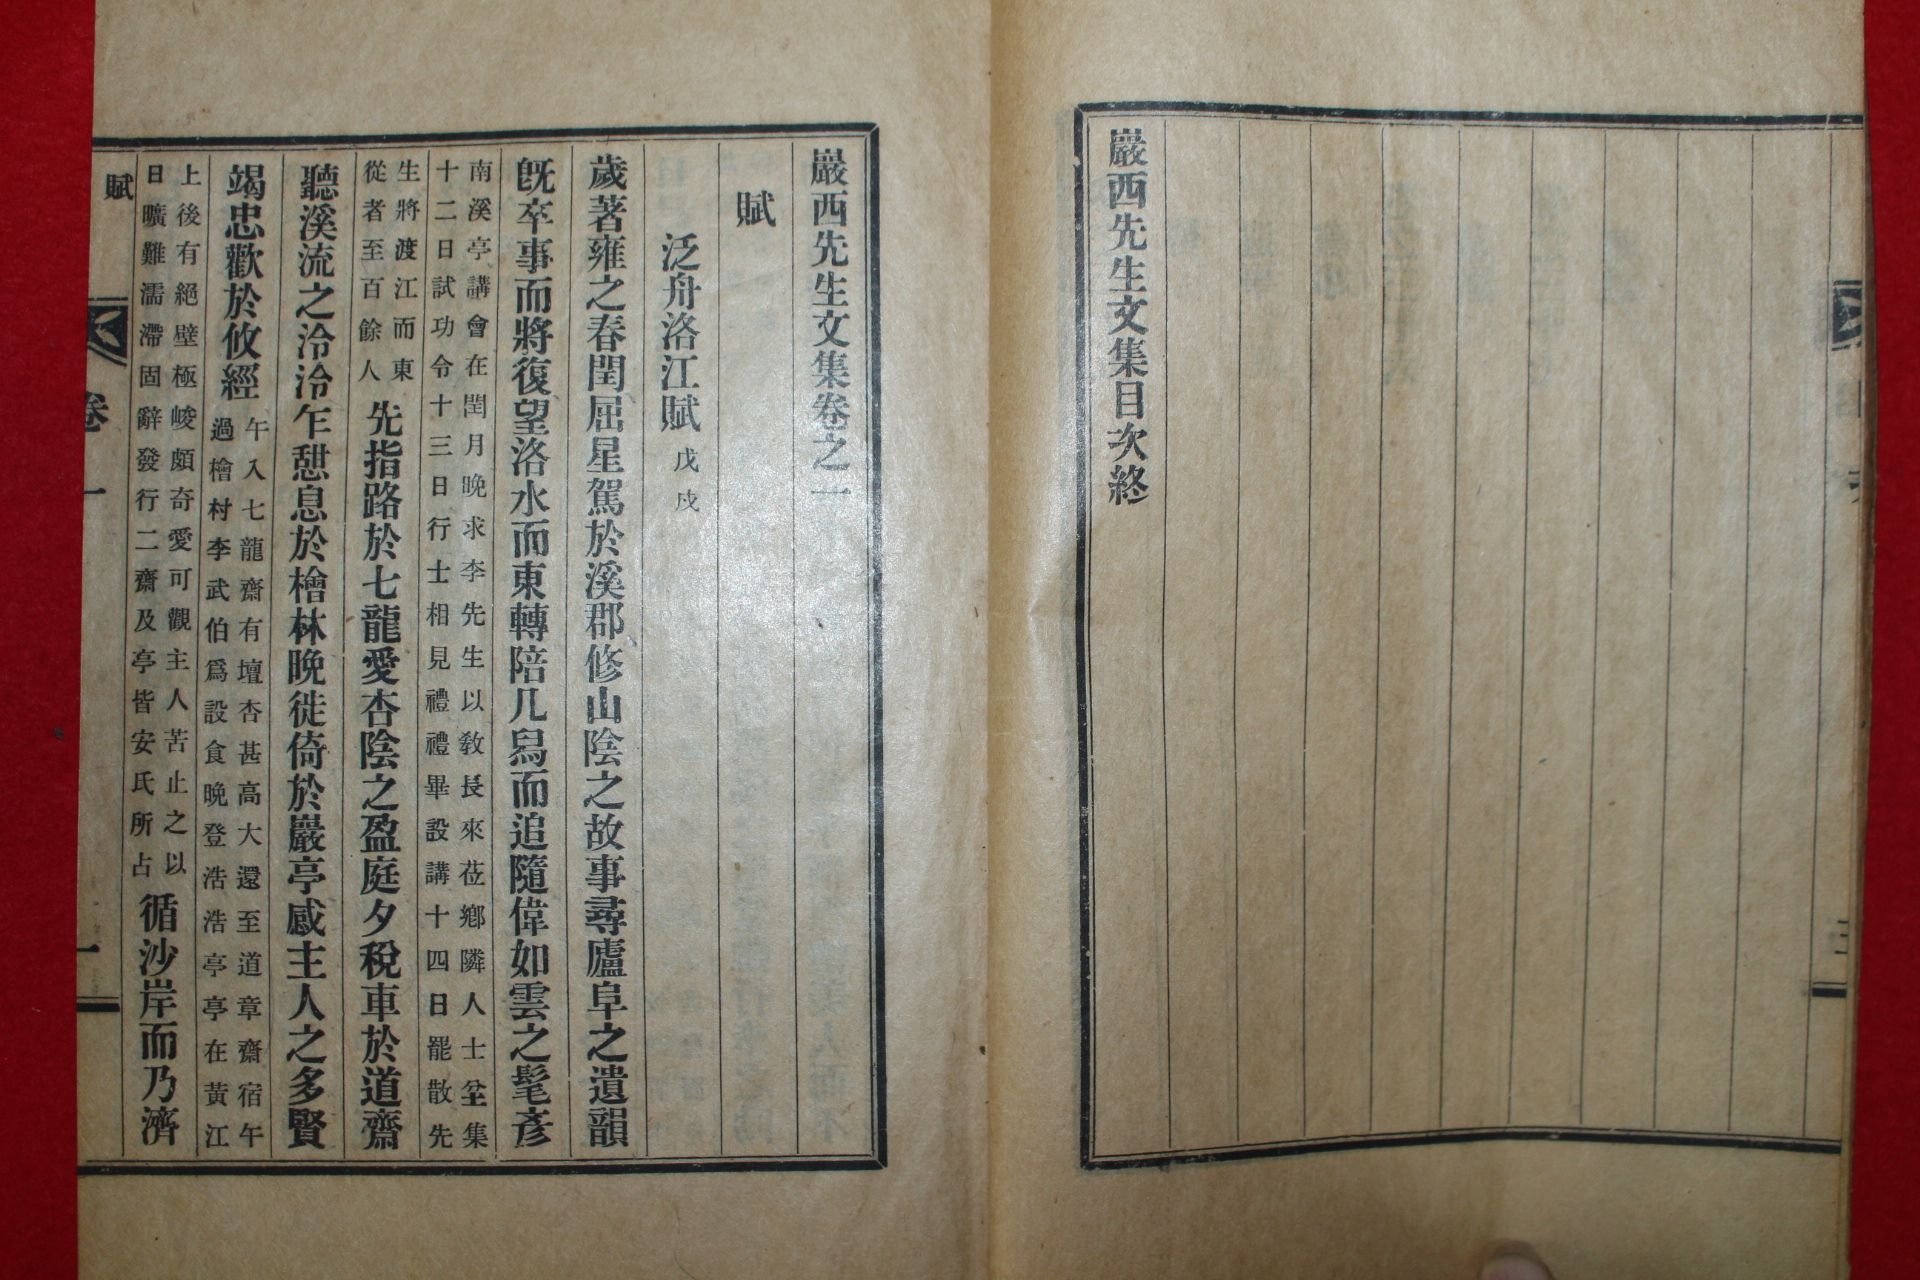 巖西先生文集目次終
巖西先生文集卷之一
賦
泛舟洛江賦 戊戌
歲著雍之春閏屈星駕於溪郡修山陰之故事尋廬阜之遺韻
旣卒事而將復望洛水而東轉陪几舃而追隨偉如雲之髦彥
南溪亭講會在閏月晚求李先生以敎長來莅鄕隣人士坌集
十二日試功令十三日行士相見禮禮畢設講十四日罷散先
生將渡江而東
從者至百餘人
先指路於七龍愛杏陰之盈庭夕稅車於道齋
聽溪流之泠泠乍憇息於檜林晚徙倚於巖亭感主人之多賢
竭忠歡於攸經
午入七龍齋有壇杏甚高大還至道章齋宿午
過檜村李武伯爲設食晚登浩浩亭亭在黃江
上後有絕壁極峻頗奇愛可觀主人苦止之以
日曠難濡滯固辭發行二齋及亭皆安氏所占
循沙岸而乃濟
賦
卷一
一